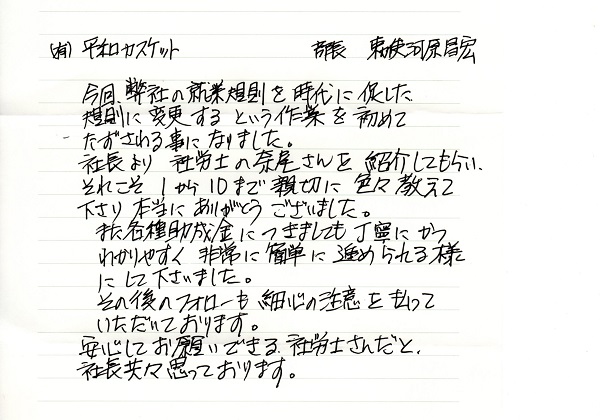 (有) 平和カスケット 部長 勅使河原昌宏
今回、弊社の就業規則を時代に促した
規則に変更するという作業を初めて
たずさわる事になりました。
社長より 社労士の奈尾さんを紹介してもらい、
それこそ 1から10まで親切に色々教えて
下さり本当にありがとうございました。
また各種助成金につきましても丁寧にかつ
わかりやすく非常に簡単に進められる様
にして下さいました。
その後のフォローも細心の注意を払って
いただいております。
安心してお願いできる、社労士さんだと、
社長共々思っております。